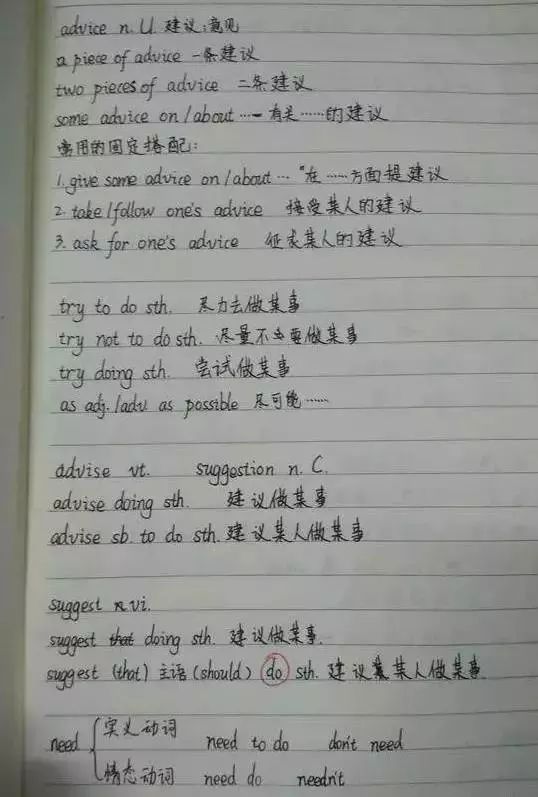 advice n. U. 建议;意见
a piece of advice 一条建议
two pieces of advice 二条建议
some advice on/about ……有关……的建议
常用的固定搭配:
1. give some advice on/about … "在……方面提建议
2. take/follow one's advice 接受某人的建议
3. ask for one's advice 征求某人的建议
try to do sth. 尽力去做某事
try not to do sth. 尽量不要做某事
try doing sth. 尝试做某事
as adj./adv as possible 尽可能……
advise vt. suggestion n. C.
advise doing sth. 建议做某事
advise sb. to do sth. 建议某人做某事
suggest vi.
suggest that doing sth. 建议做某事.
suggest (that) 主语 (should) do sth. 建议某人做某事.
need 实义动词 need to do don't need
情态动词 need do needn't